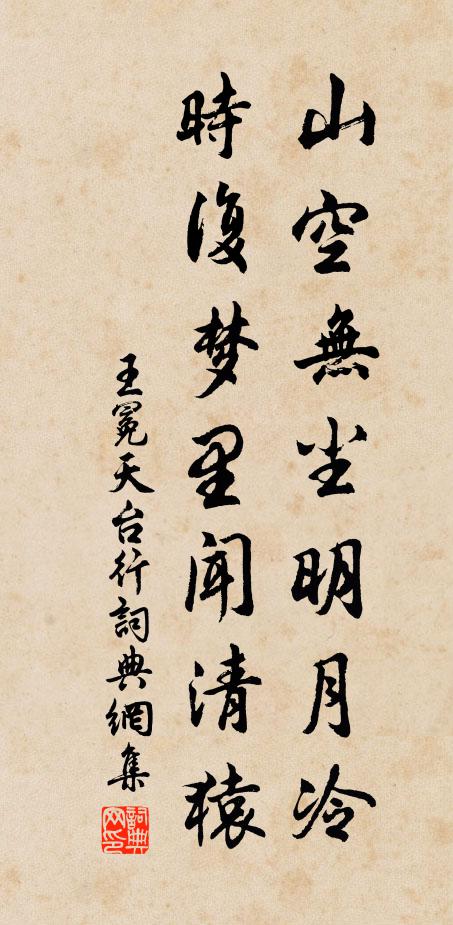 山空無尘明月冷
時復梦里闻清猿
王冕天台行詞典網集
詞典网印